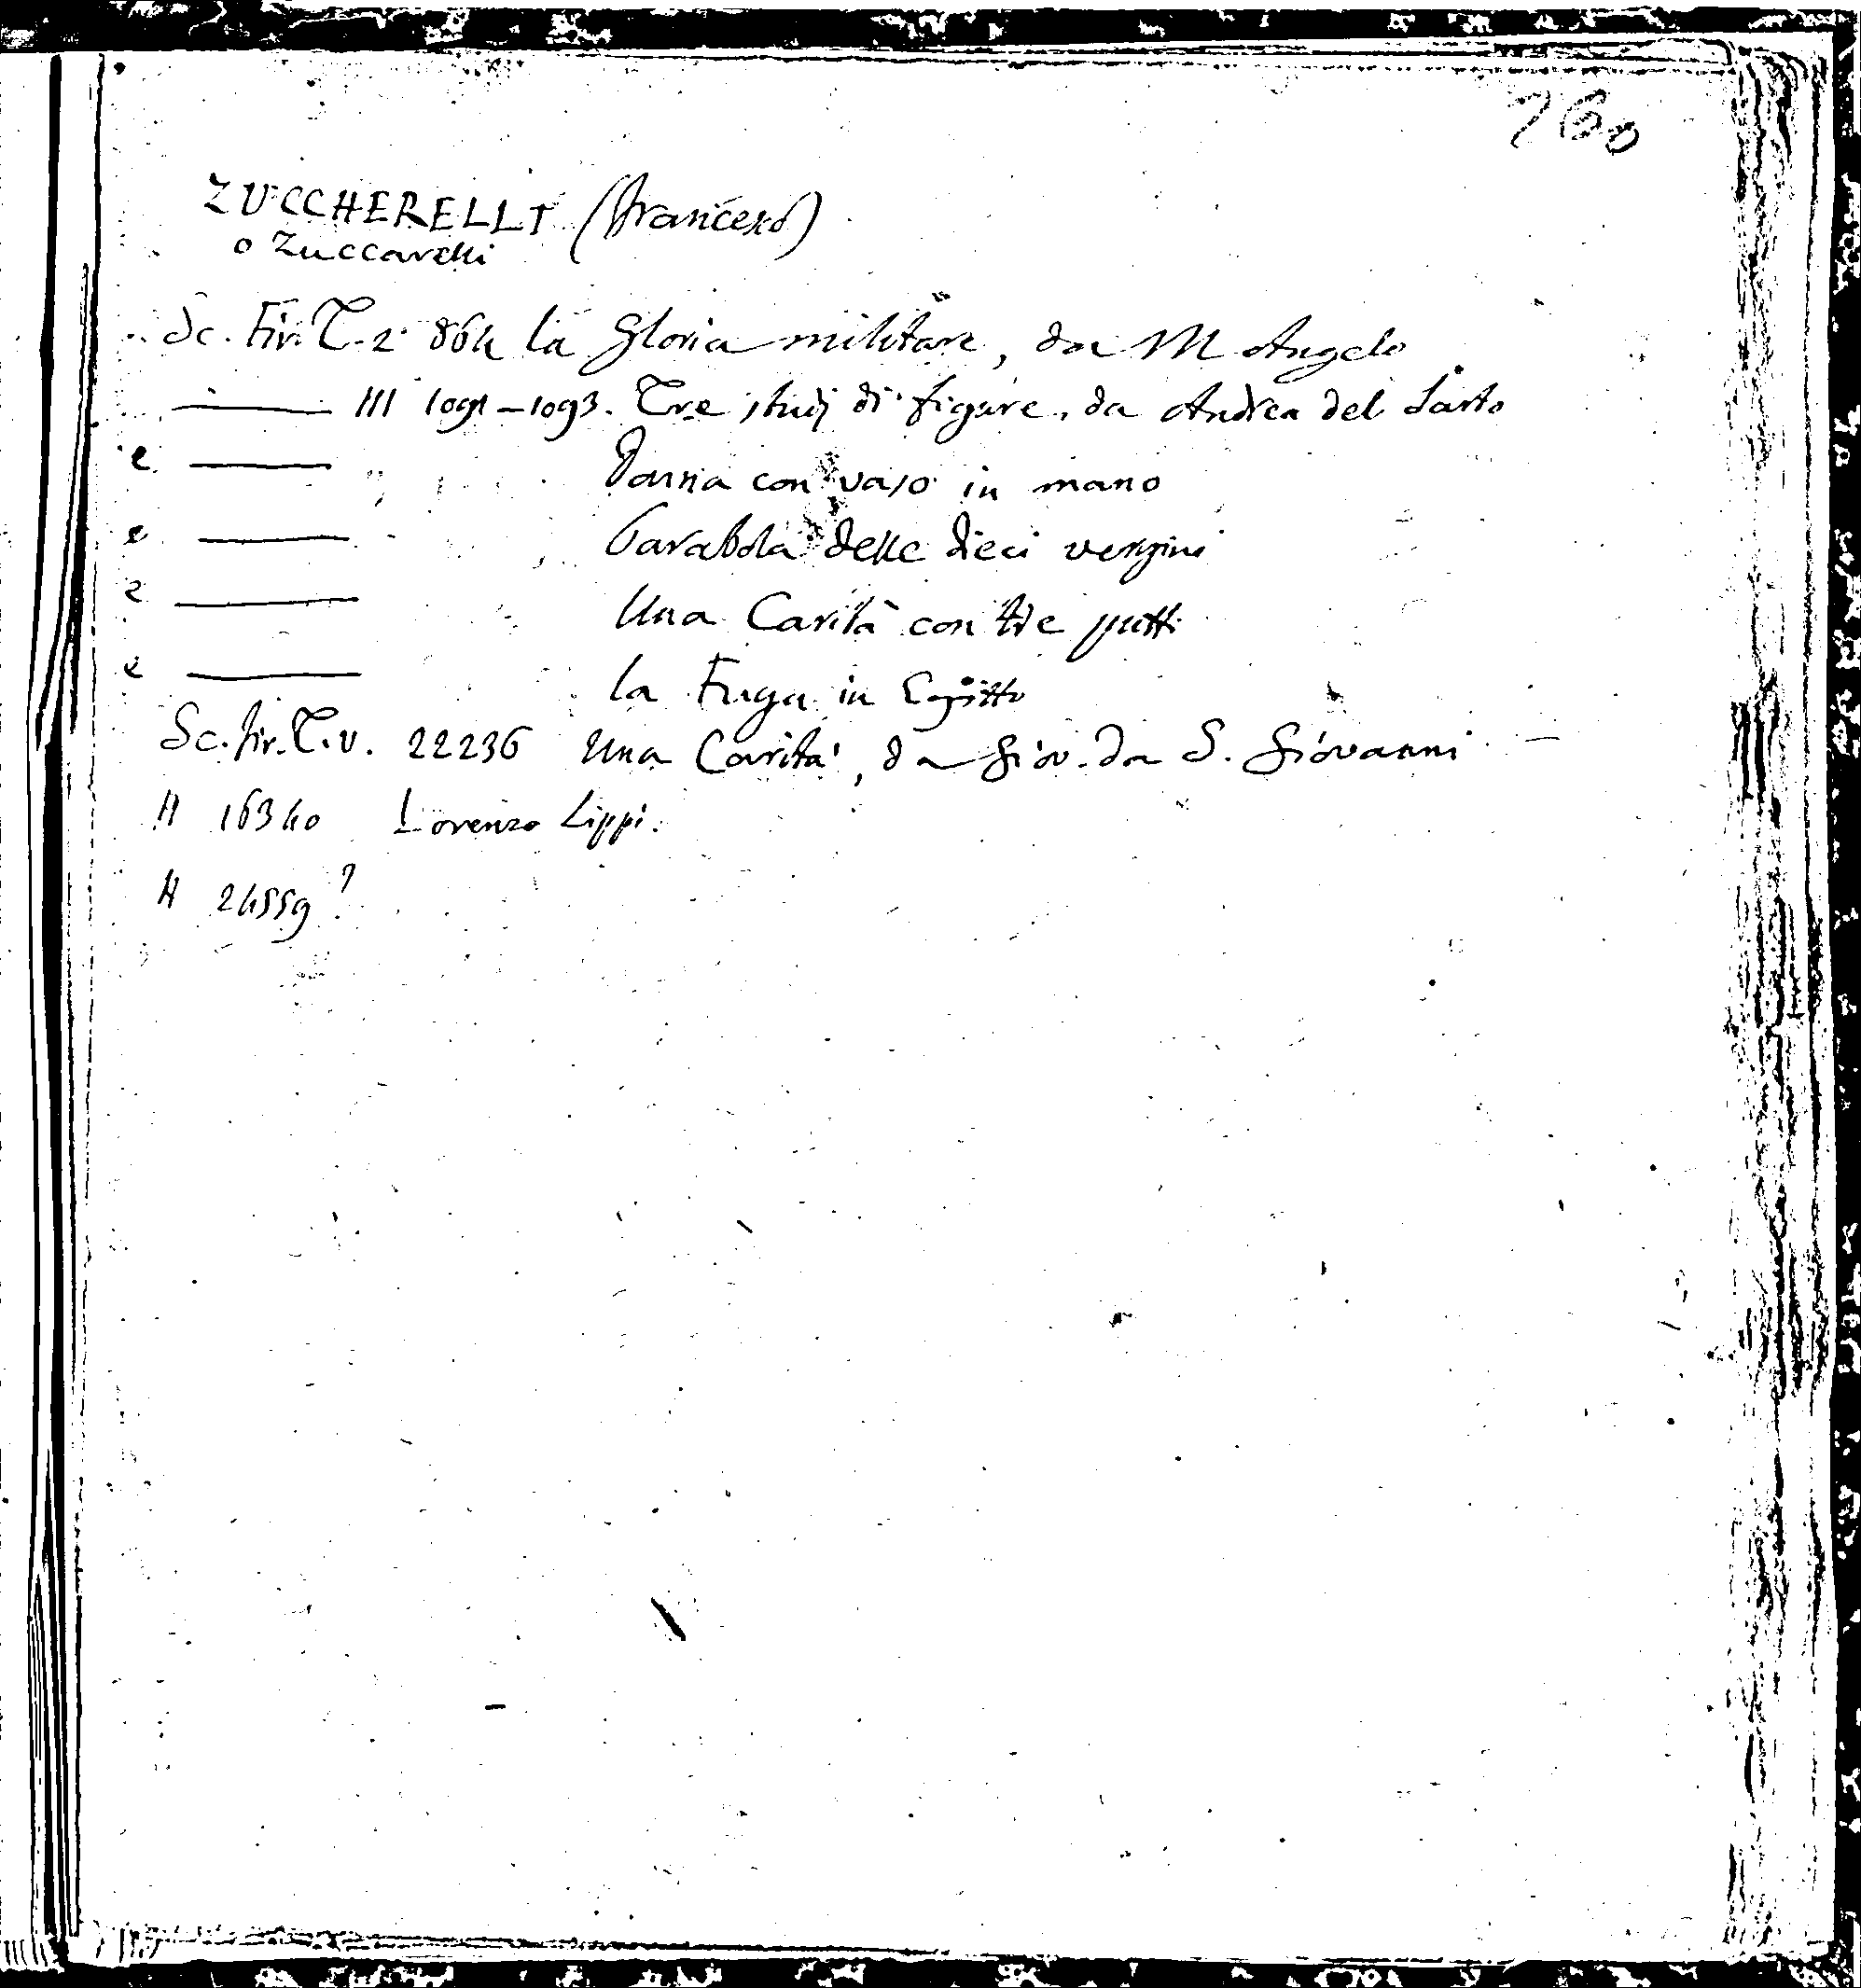 760
ZUCCHERELLI (Francesco)
o Zuccarelli
Sc. Fir. T. 2º 864 la Gloria militare, da M Angelo
——— III 1091-1093. Tre studj di figure, da Andrea del Sarto
e ——— Donna con vaso in mano
e ——— Parabola delle dieci vergini
e ——— Una Carità con tre putti
e ——— la Fuga in Egitto
Sc. fir. T. v. 22236 Una Carità, da Giov. da S. Giovanni
A 16340 Lorenzo Lippi.
A 24559?